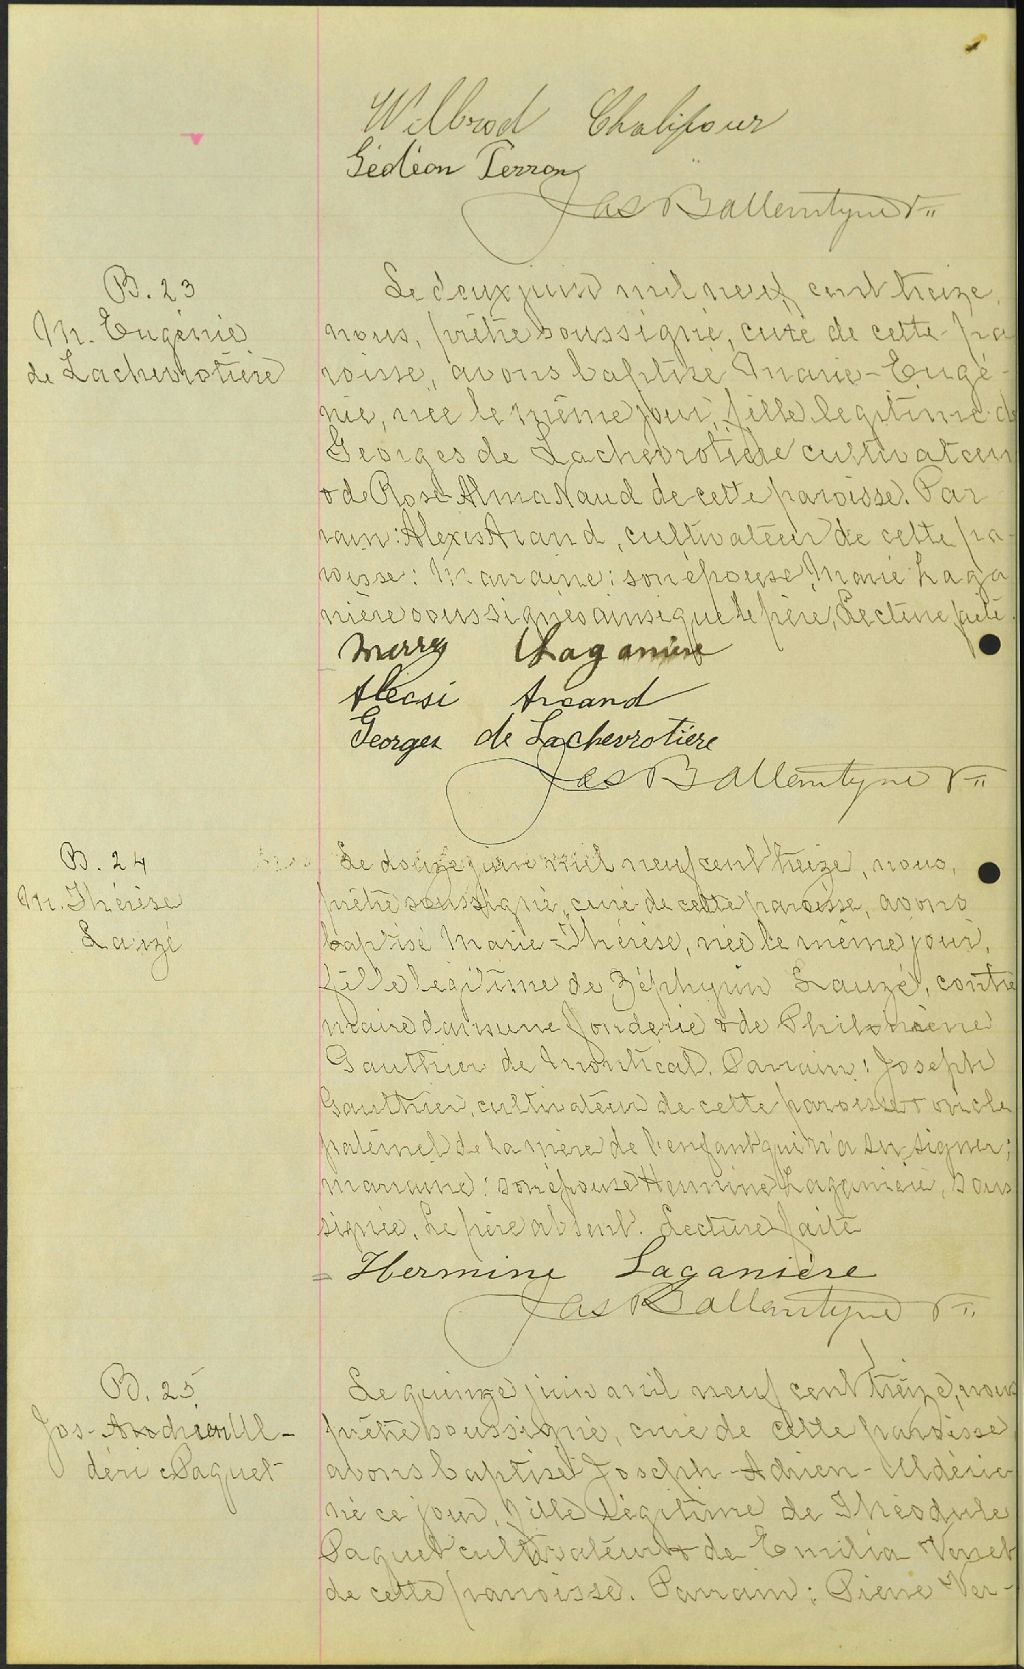 Wilbrod Chalifour
Gédéon Perron
Jas Ballantyne Ptre
B. 23
M. Eugénie
de Lachevrotière
Le deux juin mil neuf cent treize,
nous, prêtre soussigné, curé de cette pa
roisse, avons baptisé Marie-Eugé-
nie, née le même jour, fille legitime de
Georges de Lachevrotière cultivateur
& de Rose-Alma Naud de cette paroisse. Par
rain: Alexis Arcand, cultivateur de cette pa-
roisse: Marraine: son épouse Marie Laga
nière soussignés ainsi que le père, Lecture faite.
Merry Laganière
Alecsi Arcand
Georges de Lachevrotière
Jas Ballantyne Ptre
B. 24
M. Thérèse
Lauzé
Le douze juin mil neuf cent treize, nous,
prêtre soussigné, curé de cette paroisse, avons
baptisé Marie-Thérèse, née le même jour,
fille légitime de Zéphyrin Lauzé, contre
maire dans une fonderie & de Philomène
Gauthier de Montréal. Parrain: Joseph
Gauthier, cultivateur de cette paroisse & oncle
paternel de la mère de l'enfant qui n'a su signer;
marraine: son épouse Hermine Laganière, sous
signée. Le père absent. Lecture faite
Hermine Laganière
Jas Ballantyne Ptre
B. 25
Jos-Andrien Ul-
déri Paquet
Le quinze juin mil neuf cent treize, nous
prêtre soussigné, curé de cette paroisse
avons baptisé Joseph-Adrien-Uldéric
né ce jour, fille légitime de Théodule
Paquet cultivateur & de Emilia Verret
de cette paroisse. Parrain: Pierre Ver-